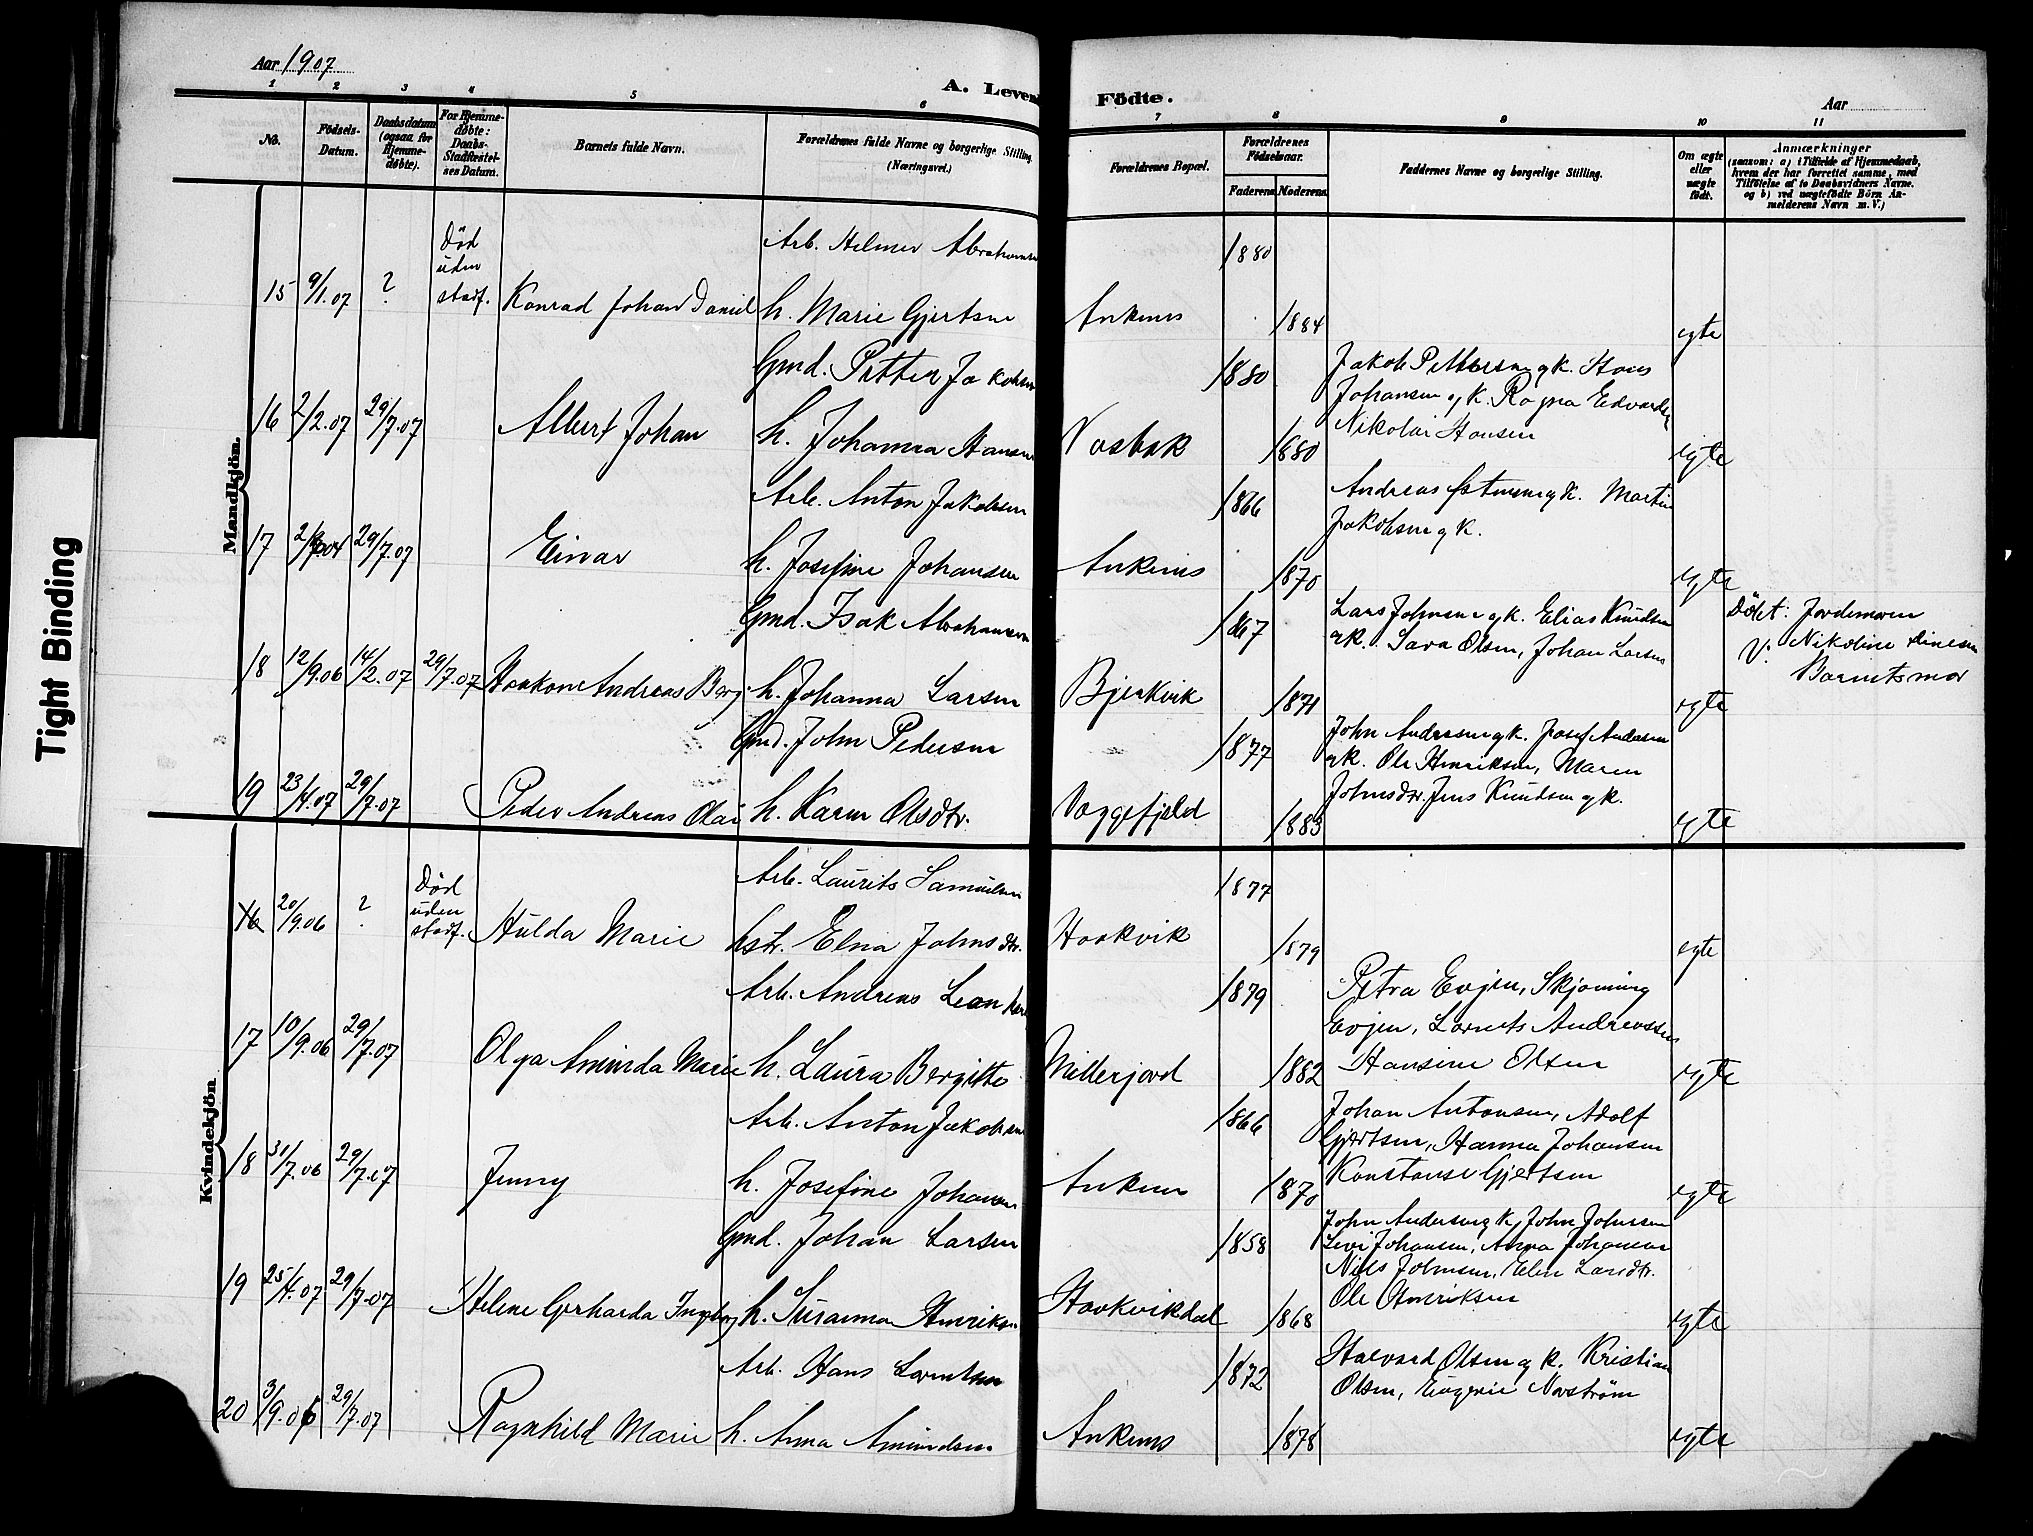 Aar 1907
A. Leven
Födte.
Aar
1 2 3 4 5 6 7 8 9 10 11
No.
Födsels-Datum.
Daabsdatum (ogsaa for Hjemme-døbte).
For Hjemme-døbte: Daabs-Stadfæstel-ses Datum.
Barnets fulde Navn.
Forældrenes fulde Navne og borgerlige Stilling.
(Næringsvei.)
Forældrenes Bopæl.
Forældrenes Födselsaar.
Faderens. Moderens.
Faddernes Navne og borgerlige Stilling.
Om ægte eller uægte födt.
Anmærkninger
(saasom: a) i Tilfælde af Hjemmedaab,
hvem der har forrettet samme, med
Tilföielse af to Daabsvidners Navne.
og b) ved uægtefödte Börn An-
melderens Navn m. V.)
Tight Binding
Mandkjön.
Död uden stadf.
Arb. Helmer Abrahamsen
1880
15 9/1.07 ? Konrad Johan Daniel h. Marie Gjertsen Ankenes 1884 egte
Gmd. Petter Jakobsen 1880 Jakob Pettersen g k. Hans
Johansen g k. Ragna Edvardsen
16 2/2.07 29/7.07 Albert Johan h. Johanna Hansen Vasbak 1880 Nikolai Hansen egte
Arb. Anton Jakobsen 1866 Andreas g k. Martin
Jakobsen g k.
17 29/7.07 Einar h. Josefine Johansen Ankenes 1870 egte
Gmd. Isak Abrahamsen 1867 Lars Johnsen g k. Elias Knudsen
g k. Sara Olsen, Johan Larsen
Döbt: Jordemoren
V. Nikoline
Barnets mor
18 12/9.06 14/2.07 29/7.07 Haakon Andreas Berg h. Johanna Larsen Bjerkvik 1871 egte
Gmd. John Pedersen 1877 John Andersen g k. Josef Andersen
g k. Ole Henriksen, Maren
19 23/4.07 29/7.07 Peder Andreas Olai h. Karen Olsdtr. Vaggefjeld 1883 Johnsdtr. Jens Knudsen g k. egte
Kvindekjön
Död uden stadf.
Arb. Laurits Samuelsen 1877
16 20/9.06 ? Hulda Marie hstr. Elna Johnsdtr. Haakvik 1879 egte
Arb. Andreas 1879 Petra Evjen, Skjoming
Evjen, Lorents Andreassen
17 10/9.06 29/7.07 Olga Aminda Marie h. Laura Bergitte Millerjord 1882 Hansine Olsen egte
Arb. Anton Jakobsen 1866 Johan Antonsen, Adolf
Gjertsen, Hanna Johansen
18 31/7.06 29/7.07 Jenny h. Josefine Johansen Ankenes 1870 Konstanse Gjertsen egte
Gmd. Johan Larsen 1858 John Andersen g k, John Johnsen
Levi Johansen, Anna Johansen
Nils Johnsen, Elen Larsdtr.
19 25/4.07 29/7.07 Helene Gerharda Ingeborg h. Susanna Henriksen Haakvikdal 1868 Ole Henriksen egte
Arb. Hans Lorentsen 1872 Halvard Olsen g k. Kristian
Olsen, Eugenie Norström
20 3/9.06 29/7.07 Ragnhild Marie h. Anna Amundsen Ankenes 1878 egte